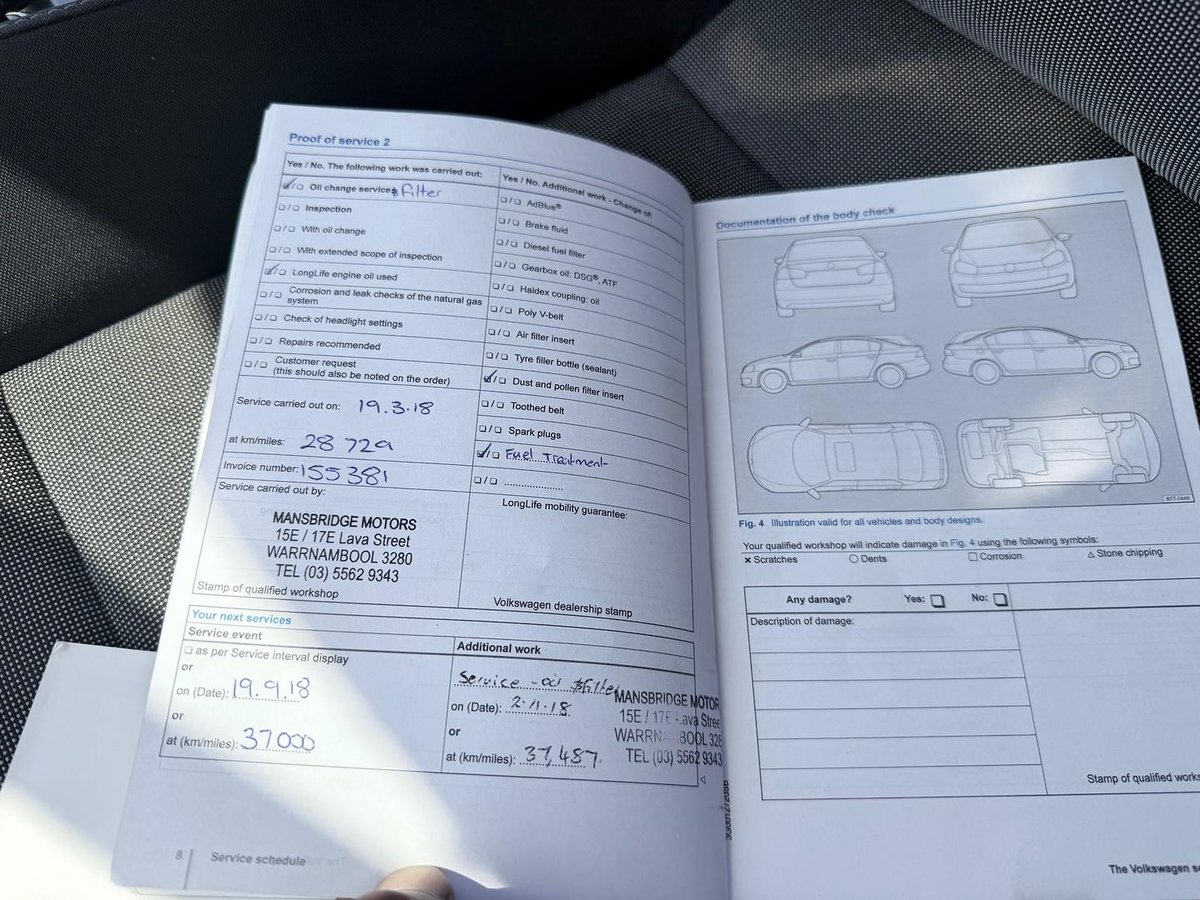 Proof of service 2
Yes / No. The following work was carried out:
☑/☐ Oil change service & Filter
☐/☐ Inspection
☐/☐ With oil change
☐/☐ With extended scope of inspection
☑/☐ LongLife engine oil used
☐/☐ Corrosion and leak checks of the natural gas
system
☐/☐ Check of headlight settings
☐/☐ Repairs recommended
☐/☐ Customer request
(this should also be noted on the order)
Service carried out on: 19.3.18
at km/miles: 28 729
Invoice number: 155381
Service carried out by:
MANSBRIDGE MOTORS
15E / 17E Lava Street
WARRNAMBOOL 3280
TEL (03) 5562 9343
Stamp of qualified workshop
Yes / No. Additional work - Change of:
☐/☐ AdBlue®
☐/☐ Brake fluid
☐/☐ Diesel fuel filter
☐/☐ Gearbox oil: DSG®, ATF
☐/☐ Haldex coupling: oil
☐/☐ Poly V-belt
☐/☐ Air filter insert
☐/☐ Tyre filler bottle (sealant)
☑/☐ Dust and pollen filter insert
☐/☐ Toothed belt
☐/☐ Spark plugs
☑/☐ Fuel Treatment
☐/☐ ....................
LongLife mobility guarantee:
Volkswagen dealership stamp
Your next services
Service event
☐ as per Service interval display
or
on (Date): 19.9.18
or
at (km/miles): 37000
Additional work
Service - oil & filter
on (Date): 2.11.18
or
at (km/miles): 37,487.
MANSBRIDGE MOTOR
15E / 17E Lava Stree
WARRN BOOL 328
TEL (03) 5562 9343
8 Service schedule
Documentation of the body check
BTT-0449
Fig. 4 Illustration valid for all vehicles and body designs.
Your qualified workshop will indicate damage in Fig. 4 using the following symbols:
× Scratches ○ Dents □ Corrosion △ Stone chipping
Any damage? Yes: ☐ No: ☐
Description of damage:
Stamp of qualified works
The Volkswagen se